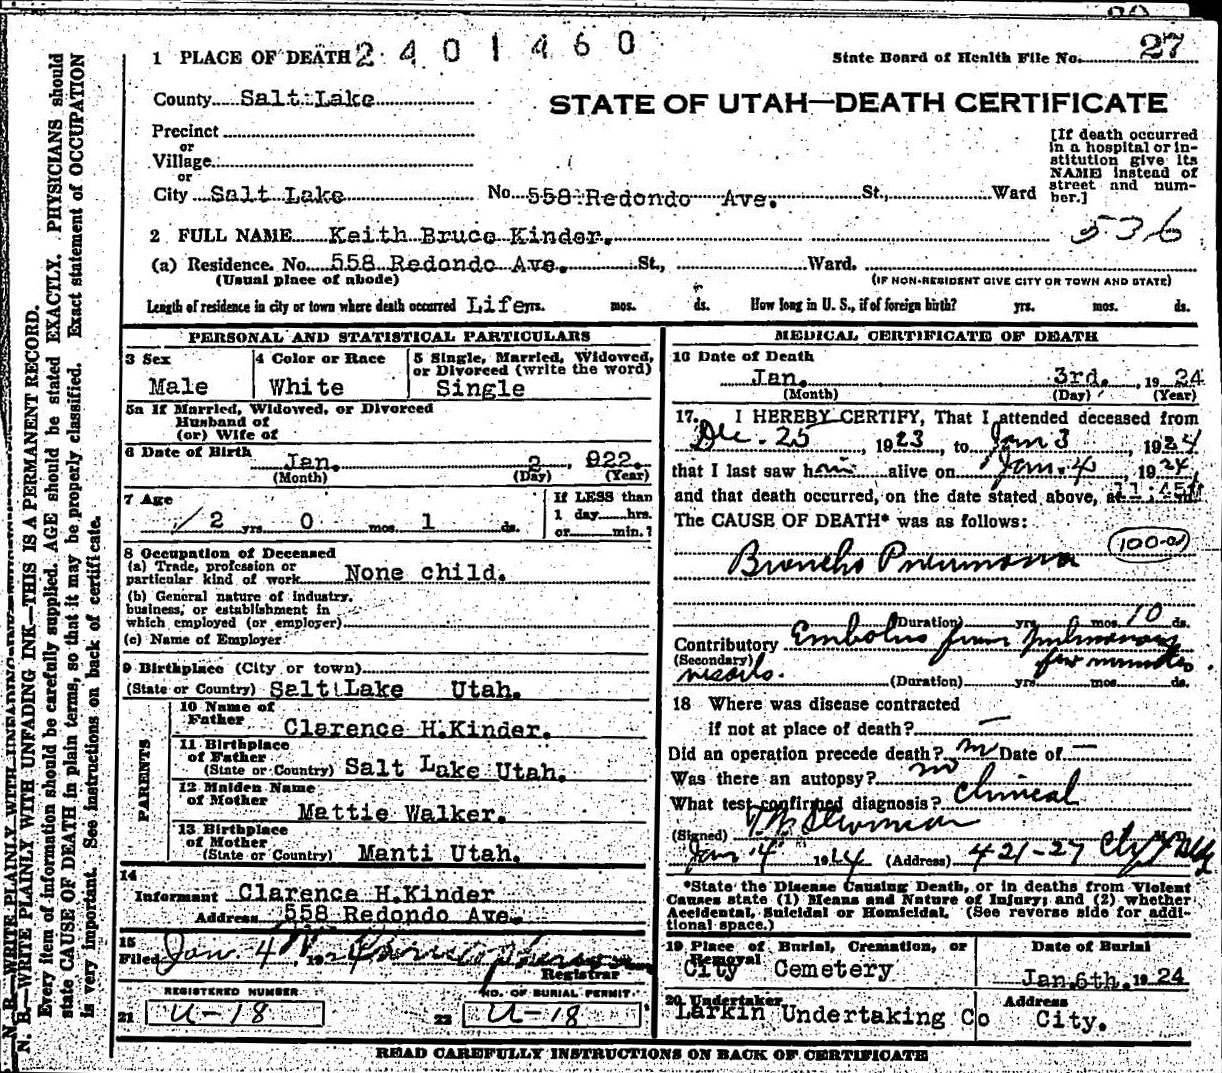 1 PLACE OF DEATH 2 4 0 1 4 6 0
State Board of Health File No. 27
County Salt Lake
STATE OF UTAH—DEATH CERTIFICATE
Precinct
or
Village
or
City Salt Lake No. 558 Redondo Ave. St., Ward
[If death occurred in a hospital or institution give its NAME instead of street and number.]
2 FULL NAME Keith Bruce Kinder.
536
(a) Residence. No. 558 Redondo Ave. St., Ward.
(Usual place of abode) (IF NON-RESIDENT GIVE CITY OR TOWN AND STATE)
Length of residence in city or town where death occurred Life yrs. mos. ds. How long in U. S., if of foreign birth? yrs. mos. ds.
PERSONAL AND STATISTICAL PARTICULARS
3 Sex
Male
4 Color or Race
White
5 Single, Married, Widowed, or Divorced (write the word)
Single
5a If Married, Widowed, or Divorced
Husband of
(or) Wife of
6 Date of Birth Jan. 2 922.
(Month) (Day) (Year)
7 Age
2 yrs. 0 mos. 1 ds.
If LESS than
1 day hrs.
or min.?
8 Occupation of Deceased
(a) Trade, profession or
particular kind of work None child.
(b) General nature of industry,
business, or establishment in
which employed (or employer)
(c) Name of Employer
9 Birthplace (City or town)
(State or Country) Salt Lake Utah.
PARENTS
10 Name of
Father Clarence H.Kinder.
11 Birthplace
of Father
(State or Country) Salt Lake Utah.
12 Maiden Name
of Mother Mattie Walker.
13 Birthplace
of Mother
(State or Country) Manti Utah.
14
Informant Clarence H.Kinder
Address 558 Redondo Ave.
15
Filed Jan. 4, 19
Registrar
REGISTERED NUMBER
21 U-18
NO. OF BURIAL PERMIT.
22 U-18
MEDICAL CERTIFICATE OF DEATH
16 Date of Death
Jan. 3rd. , 19 24
(Month) (Day) (Year)
17. I HEREBY CERTIFY, That I attended deceased from
Dec. 25, 1923, to Jan 3, 1924
that I last saw him alive on Jan. 4, 1924
and that death occurred, on the date stated above, at
The CAUSE OF DEATH* was as follows:
Broncho Pneumona
(Duration) yrs. 0 mos. 10 ds.
Contributory Embolus from pulmonary
(Secondary) few minutes
vessels. (Duration) yrs. mos. ds.
18 Where was disease contracted
if not at place of death? —
Did an operation precede death? no Date of —
Was there an autopsy? no
What test confirmed diagnosis? clinical
(Signed)
Jan 4 1924 (Address) 421-27
*State the Disease Causing Death, or in deaths from Violent
Causes state (1) Means and Nature of Injury; and (2) whether
Accidental, Suicidal or Homicidal. (See reverse side for addi-
tional space.)
19 Place of Burial, Cremation, or
Removal
City Cemetery
Date of Burial
Jan.6th. 19 24
20 Undertaker
Larkin Undertaking Co
Address
City.
READ CAREFULLY INSTRUCTIONS ON BACK OF CERTIFICATE
N. B.—WRITE PLAINLY WITH UNFADING INK—THIS IS A PERMANENT RECORD.
Every item of information should be carefully supplied. AGE should be stated EXACTLY. PHYSICIANS should
state CAUSE OF DEATH in plain terms, so that it may be properly classified. Exact statement of OCCUPATION
is very important. See instructions on back of certificate.